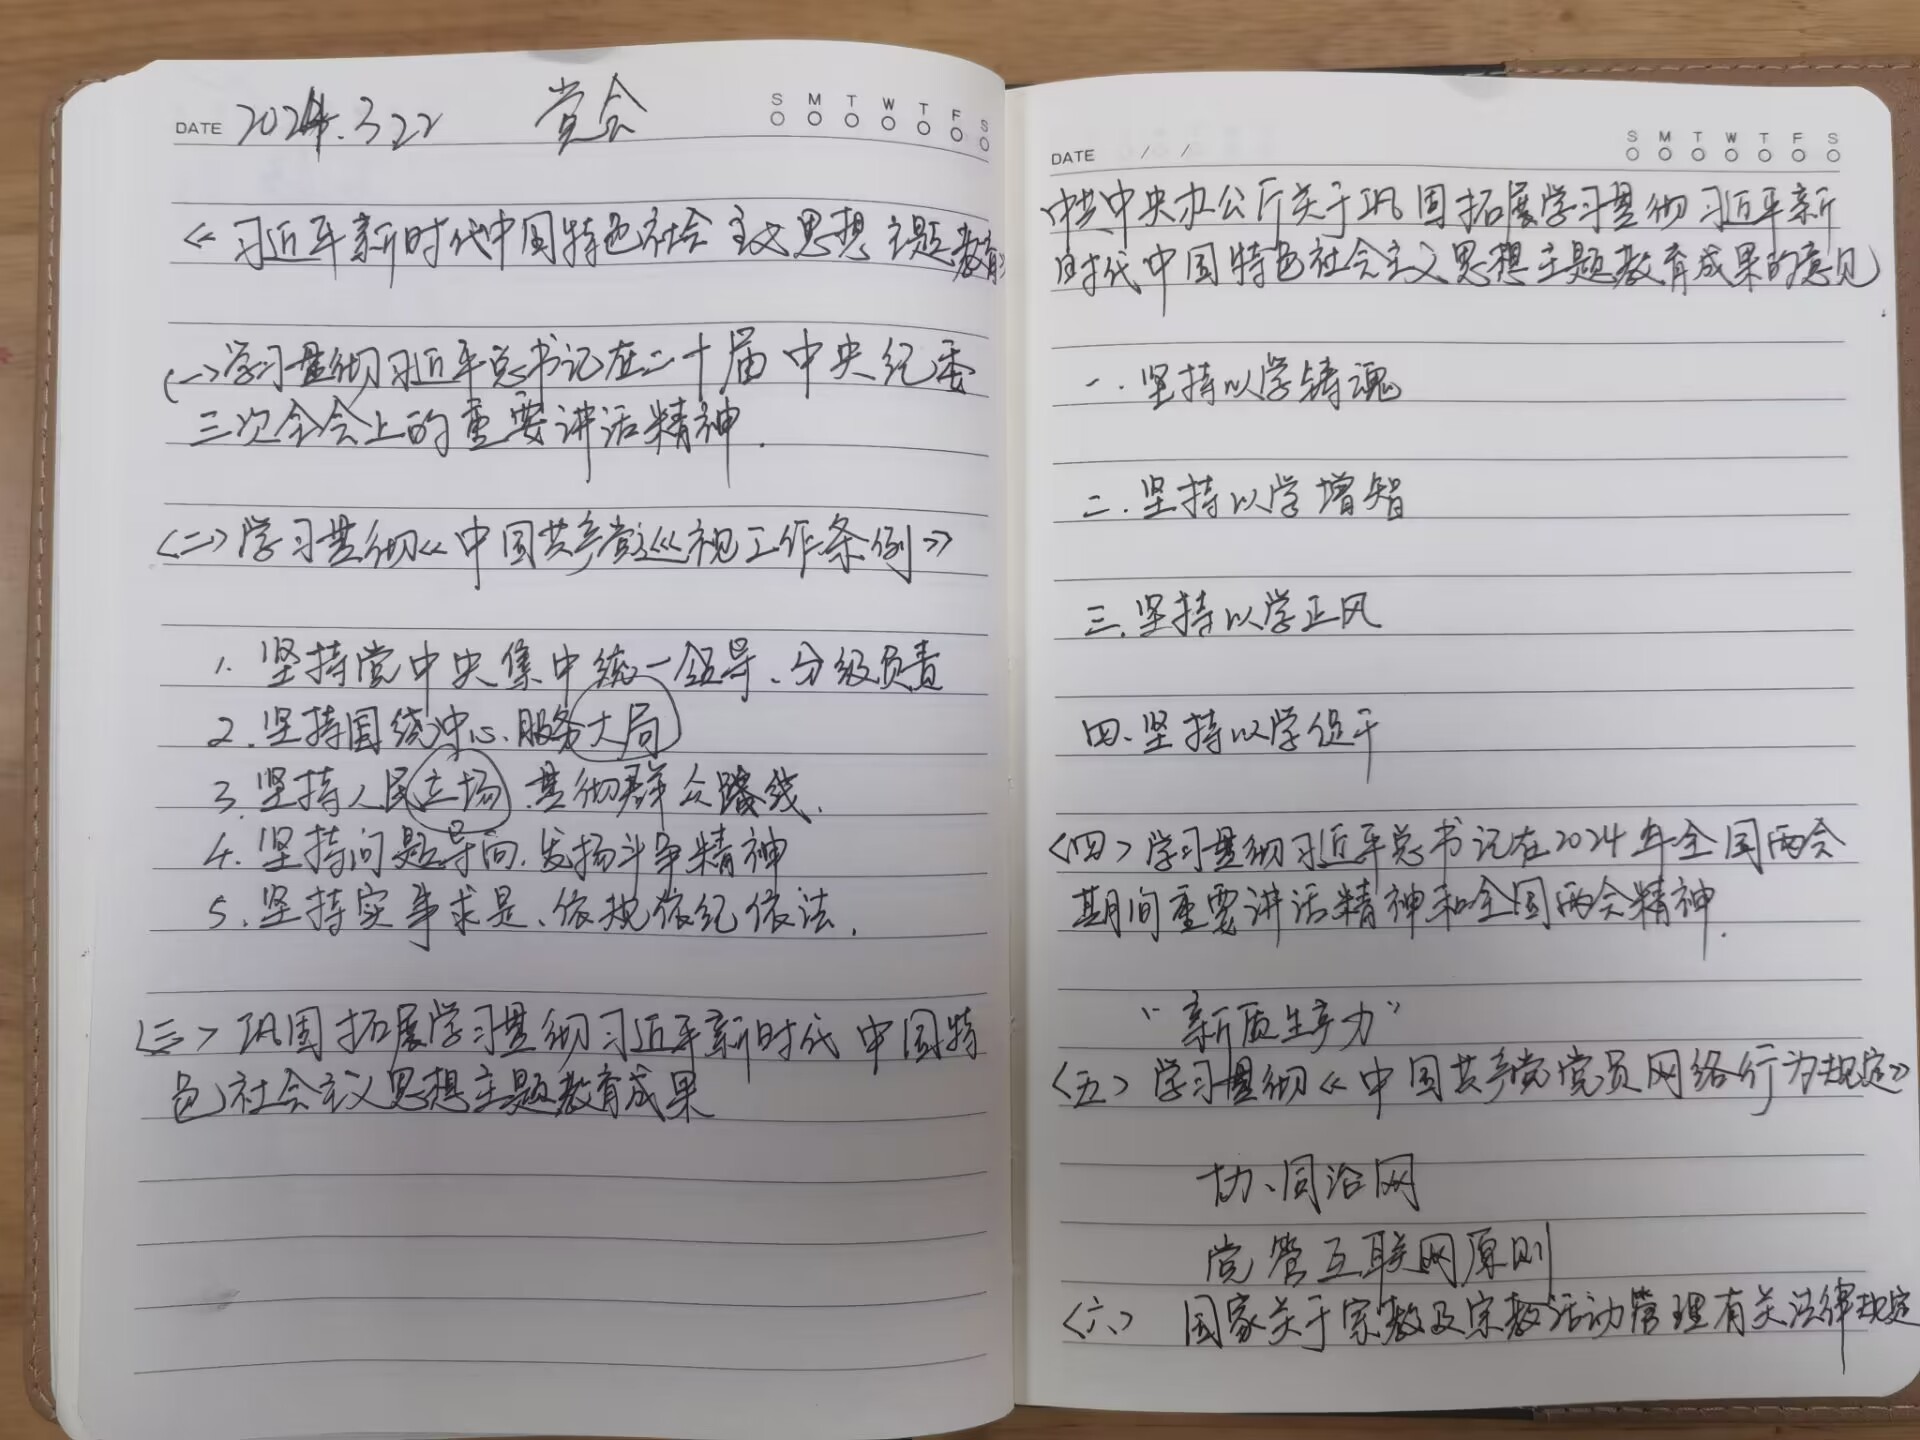 DATE 2024.3.22 党会 S M T W T F S
《习近平新时代中国特色社会主义思想主题教育》
(一)学习贯彻习近平总书记在二十届中央纪委
三次全会上的重要讲话精神.
<二>学习贯彻《中国共产党巡视工作条例》
1. 坚持党中央集中统一领导、分级负责
2. 坚持围绕中心、服务大局
3. 坚持人民立场、贯彻群众路线.
4. 坚持问题导向、发扬斗争精神
5. 坚持实事求是、依规依纪依法.
(三) 巩固拓展学习贯彻习近平新时代中国特
色社会主义思想主题教育成果
DATE / / S M T W T F S
中共中央办公厅关于巩固拓展学习贯彻习近平新
时代中国特色社会主义思想主题教育成果的意见
一.坚持以学铸魂
二.坚持以学增智
三.坚持以学正风
四.坚持以学促干
<四>学习贯彻习近平总书记在2024年全国两会
期间重要讲话精神和全国两会精神.
"新质生产力"
<五>学习贯彻《中国共产党党员网络行为规定》
协、同治网
党管互联网原则
<六> 国家关于宗教及宗教活动管理有关法律规定